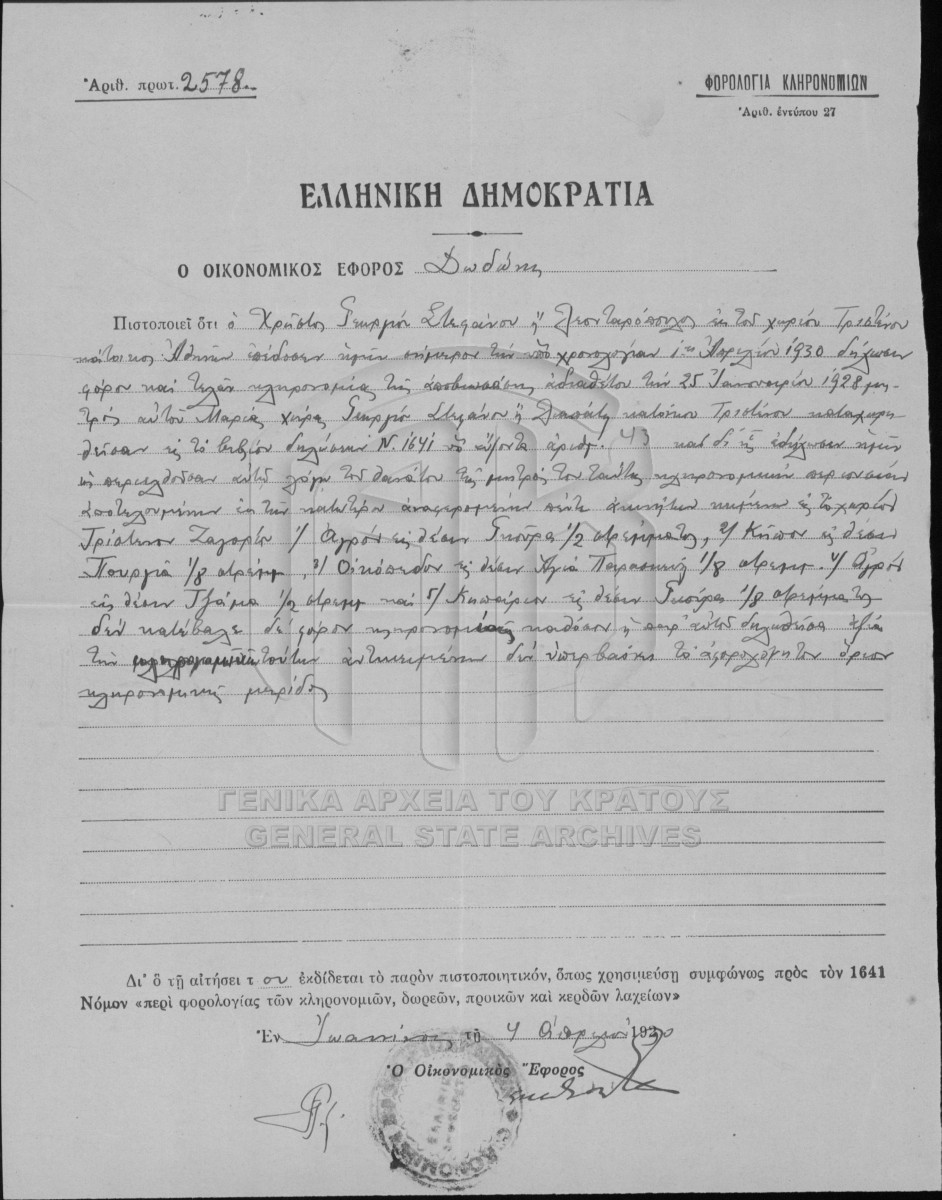 Ἀριθ. πρωτ. 2578
ΦΟΡΟΛΟΓΙΑ ΚΛΗΡΟΝΟΜΙΩΝ
Ἀριθ. ἐντύπου 27
ΕΛΛΗΝΙΚΗ ΔΗΜΟΚΡΑΤΙΑ
Ο ΟΙΚΟΝΟΜΙΚΟΣ ΕΦΟΡΟΣ Δωδώνης
Πιστοποιεῖ ὅτι ὁ Χρῆστος Γεωργίου Στεφάνου ἢ Λεονταρόπουλος ἐκ τοῦ χωρίου Τριστένου
κάτοικος Ἀθηνῶν ἐπέδωσεν ἡμῖν σήμερον τὴν ὑπὸ χρονολογίαν 1ην Ἀπριλίου 1930 δήλωσιν
φόρου καὶ τελῶν κληρονομίας τῆς ἀποβιωσάσης ἀδιαθέτου τὴν 25 Ἰανουαρίου 1928 μη-
τρός αὐτοῦ Μαρίας χήρας Γεωργίου Στεφάνου ἢ κατοίκου Τριστένου καταχωρη
θεῖσαν εἰς τὸ βιβλίον δηλώσεων Ν. 1641 ὑπ' αὔξοντα ἀριθμ. 43 καὶ δι' ἧς ἐδήλωσεν ἡμῖν
ὡς περιελθοῦσαν αὐτῷ λόγῳ τοῦ θανάτου τῆς μητρός του ταύτης κληρονομικὴν περιουσίαν
ἀποτελουμένην ἐκ τῶν κατωτέρω ἀναφερομένων πέντε ἀκινήτων κειμένων εἰς τὸ χωρίον
Τρίστενον Ζαγορίου 1/ Ἀγρόν εἰς θέσιν Γκούρα 1/2 στρέμματος, 2/ Κῆπον εἰς θέσιν
Πουργιά 1/8 στρέμμ, 3/ Οἰκόπεδον εἰς θέσιν Ἁγιά Παρασκευή 1/8 στρεμμ. 4/ Ἀγρόν
εἰς θέσιν Τζάμα 1/2 στρεμμ καὶ 5/ Κηπάριον εἰς θέσιν Γκούρα 1/8 στρέμματος
δέν κατέβαλε δέ φόρον κληρονομίας καθόσον ἡ παρ' αὐτοῦ δηλωθεῖσα ἀξία
τῶν τούτων ἀντικειμένων δέν ὑπερβαίνει τὸ ἀφορολόγητον ὅριον
κληρονομικῆς μερίδος
ΓΕΝΙΚΑ ΑΡΧΕΙΑ ΤΟΥ ΚΡΑΤΟΥΣ
GENERAL STATE ARCHIVES
Δι' ὃ τῇ αἰτήσει τ ου ἐκδίδεται τὸ παρὸν πιστοποιητικόν, ὅπως χρησιμεύσῃ συμφώνως πρὸς τὸν 1641
Νόμον «περὶ φορολογίας τῶν κληρονομιῶν, δωρεῶν, προικῶν καὶ κερδῶν λαχείων»
Ἐν Ἰωαννίνοις τῇ 4 Ἀπριλίου 1930
Ὁ Οἰκονομικὸς Ἔφορος